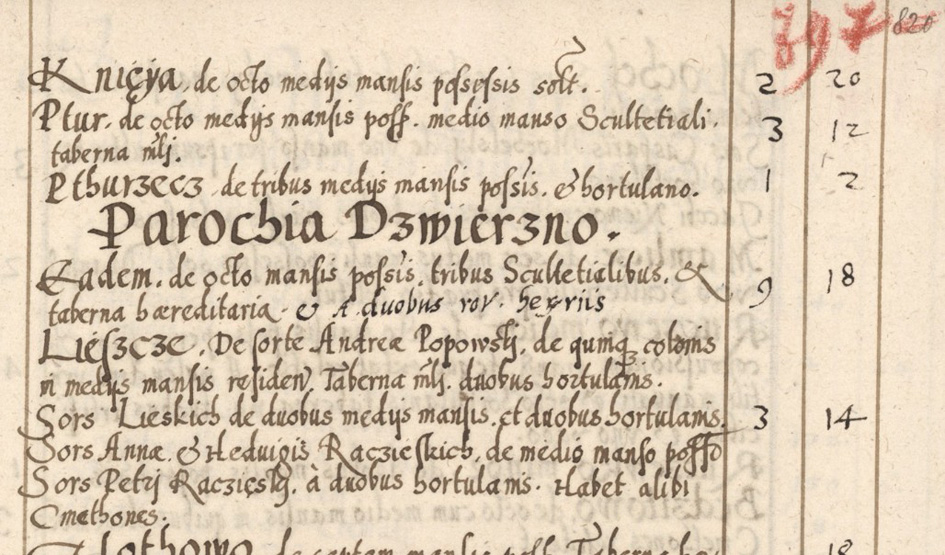 797 820
Knieýa de octo medijs mansis possessis solt. 2 20
Ptur. de octo medijs mansis poss. medio manso Scultetiali. 3 12
taberna mlj.
Pthurzecz de tribus medijs mansis possis. & hortulano. 1 2
Parochia Dzwierzno.
Eadem. de octo mansis possis. tribus Scultetialibus. & 9 18
taberna hæreditaria & A duobus
Lieszcze. De sorte Andreæ Popowskj. de quinq colonis
in medijs mansis residen. Taberna mlj. duobus hortulanis.
Sors Lieskich de duobus medijs mansis. et duobus hortulanis. 3 14
Sors Annæ. & Heduigis Raczieskich. de medio manso posso
Sors Petrj à duobus hortulanis. Habet alibi
Cmethones.
de septem mansis poss. Taberna 18